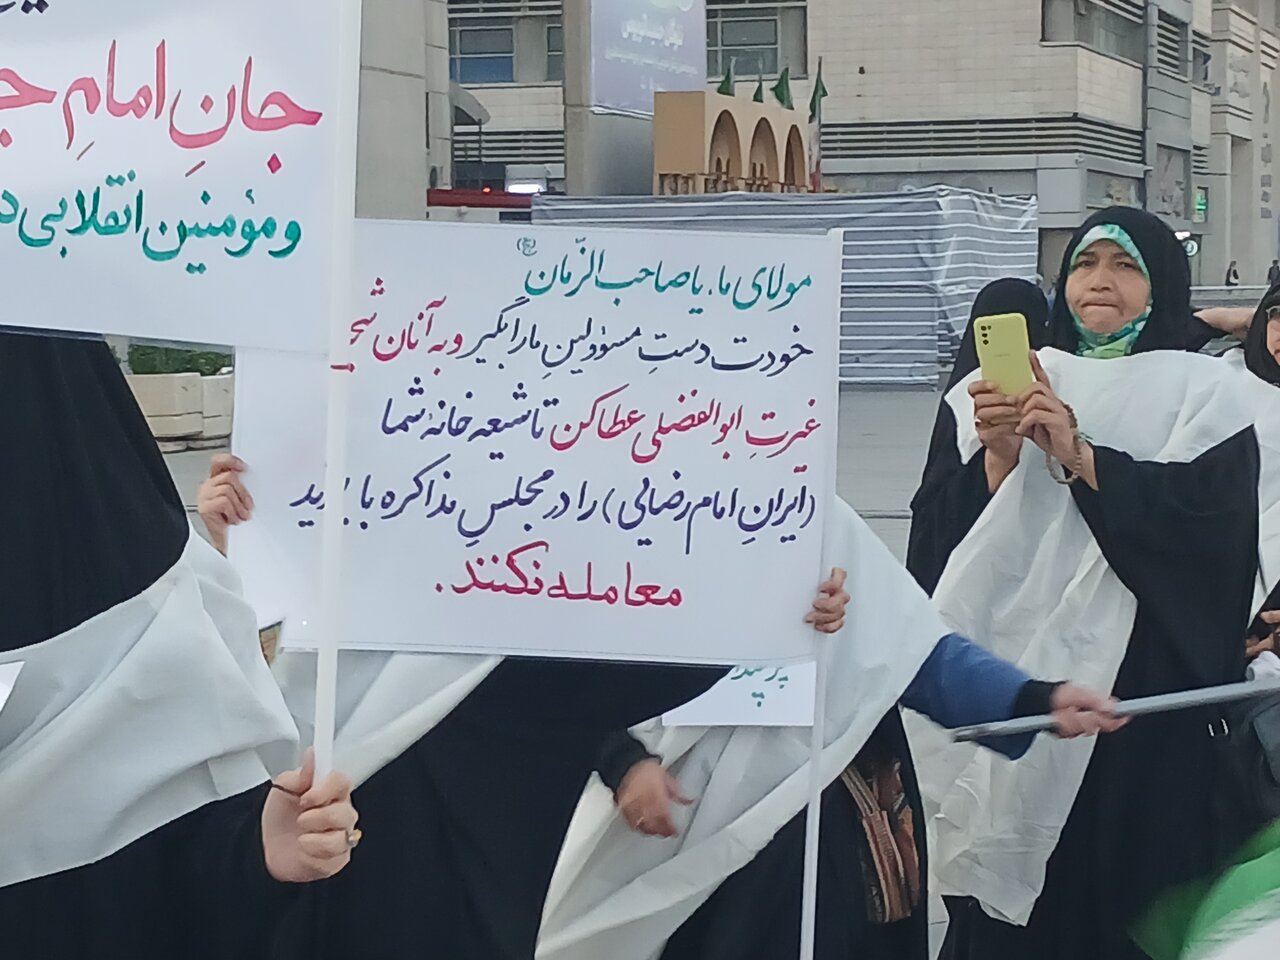 جانِ امامِ
و مؤمنین انقلابی
مولای ما، یا صاحب الزّمان (عج)
خودت دستِ مسؤولینِ ما را بگیر و به آنان
غیرتِ ابوالفضلی عطا کن تا شیعه خانهٔ شما
(ایرانِ امام رضایی) را در مجلسِ مذاکره با
معامله نکنند.